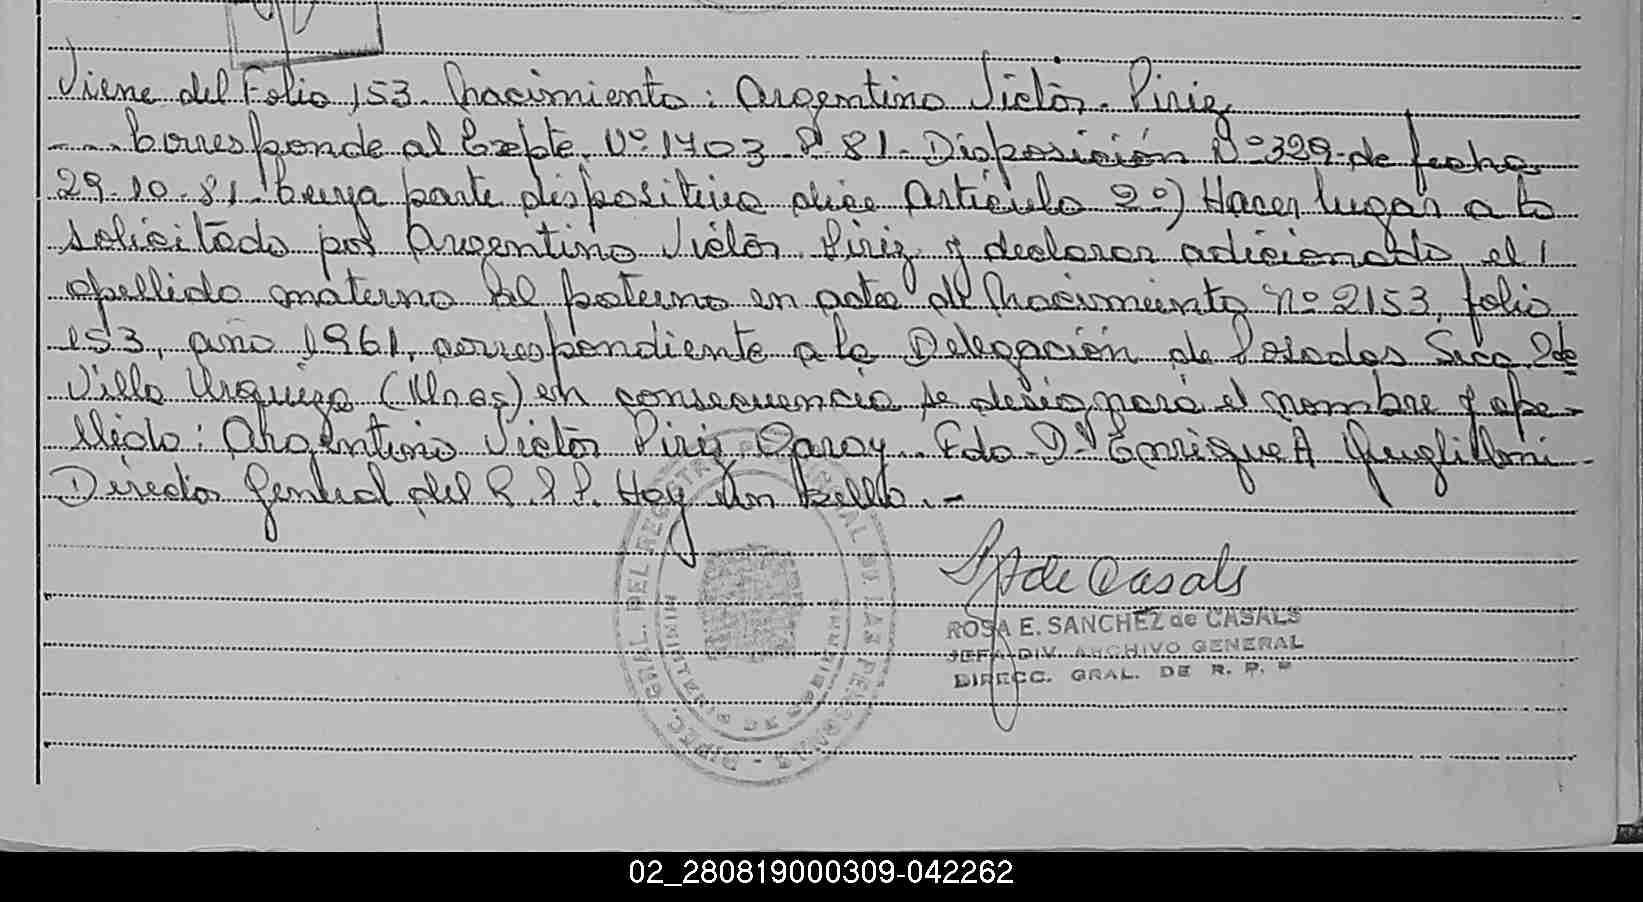 Viene del Folio 153. Nacimiento: Argentino Victor. Piriz
---Corresponde al Expte. Nº 1703 P 81. Disposición Nº 329 de fecha
29-10-81. Cuya parte dispositiva dice Articulo 2º) Hacer lugar a lo
solicitado por Argentino Victor Piriz y declarar adicionado el
apellido materno al paterno en acta de Nacimiento Nº 2153, folio
153, año 1961, correspondiente a la Delegación de Posadas Secc. 2da
Villa Urquiza (Mnes) en consecuencia se designará el nombre y ape-
llido: Argentino Victor Piriz Garay. Fdo. Dº Enrique A
Director General del R.P.P. Hay un sello.-
de Casals
ROSA E. SANCHEZ de CASALS
JEFA DIV. ARCHIVO GENERAL
DIRECC. GRAL. DE R. P. P
DIREC. GRAL. DEL REGISTRO PROVINCIAL DE LAS PERSONAS
02_280819000309-042262